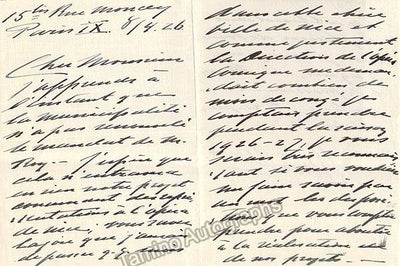 15 bis Rue Moncey
Paris IX. 8/4. 26
Cher Monsieur
J'apprends à
l'instant que
la municipalité
n'a pas renouvelé
le mandat de M.
Roy — J'espère que
cela n'entravera
en rien notre projet
concernant des représ
sentations à l'Opéra
de Nice; vous savez
la joie que j'aurais
de passer q.q. mois
dans cette chère
ville de Nice et
comme justement
la Direction de l'Opéra
Comique me deman
dait combien de
mois de congé je
comptais prendre
pendant la saison
1926-27, je vous
serais très reconnais
sant si vous vouliez
me faire savoir par
un mot les dispo
que vous comptez
prendre pour aboutir
à la réalisation
de nos projets —
Tamino Autographs